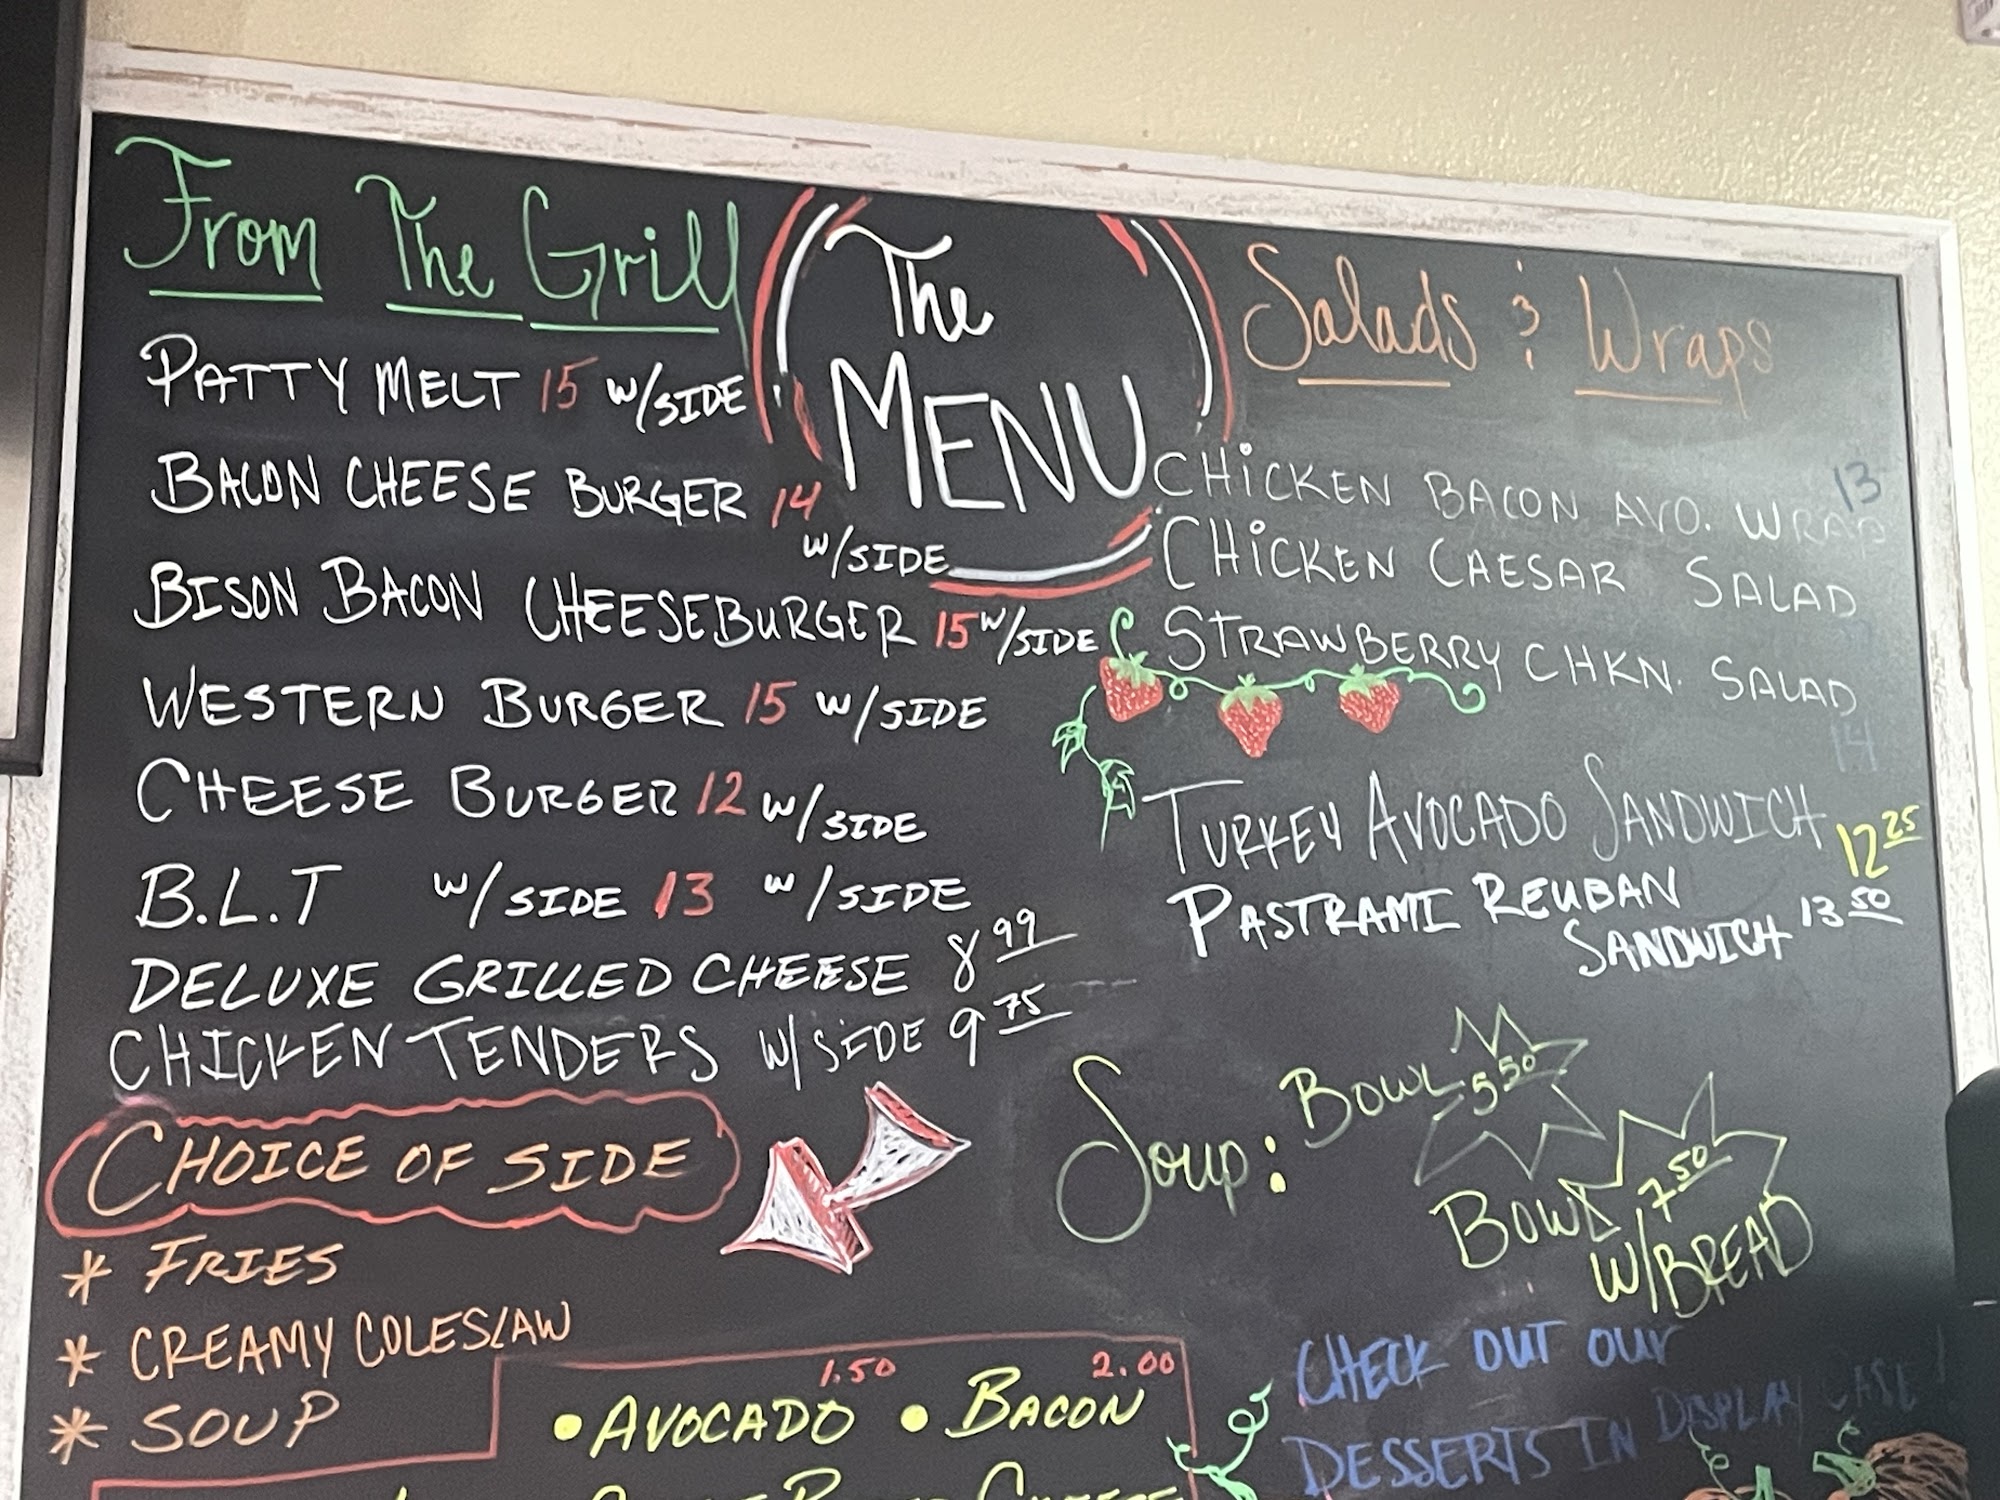 From The Grill
PATTY MELT 15 W/SIDE
BACON CHEESE BURGER 14
W/SIDE
BISON BACON CHEESEBURGER 15 W/SIDE
WESTERN BURGER 15 W/SIDE
CHEESE BURGER 12 W/SIDE
B.L.T W/SIDE 13 W/SIDE
DELUXE GRILLED CHEESE 8 99
CHICKEN TENDERS W/SIDE 9 75
CHOICE OF SIDE
* FRIES
* CREAMY COLESLAW
* SOUP
1.50 2.00
• AVOCADO • BACON
The
MENU
Salads & Wraps
13
CHICKEN BACON AVO. WRAP
CHICKEN CAESAR SALAD
STRAWBERRY CHKN. SALAD
14
TURKEY AVOCADO SANDWICH 12 25
PASTRAMI REUBAN
SANDWICH 13 50
Soup: BOWL 5 50
BOWL 7 50
W/BREAD
CHECK OUT OUR
DESSERTS IN DISPLAY CASE!